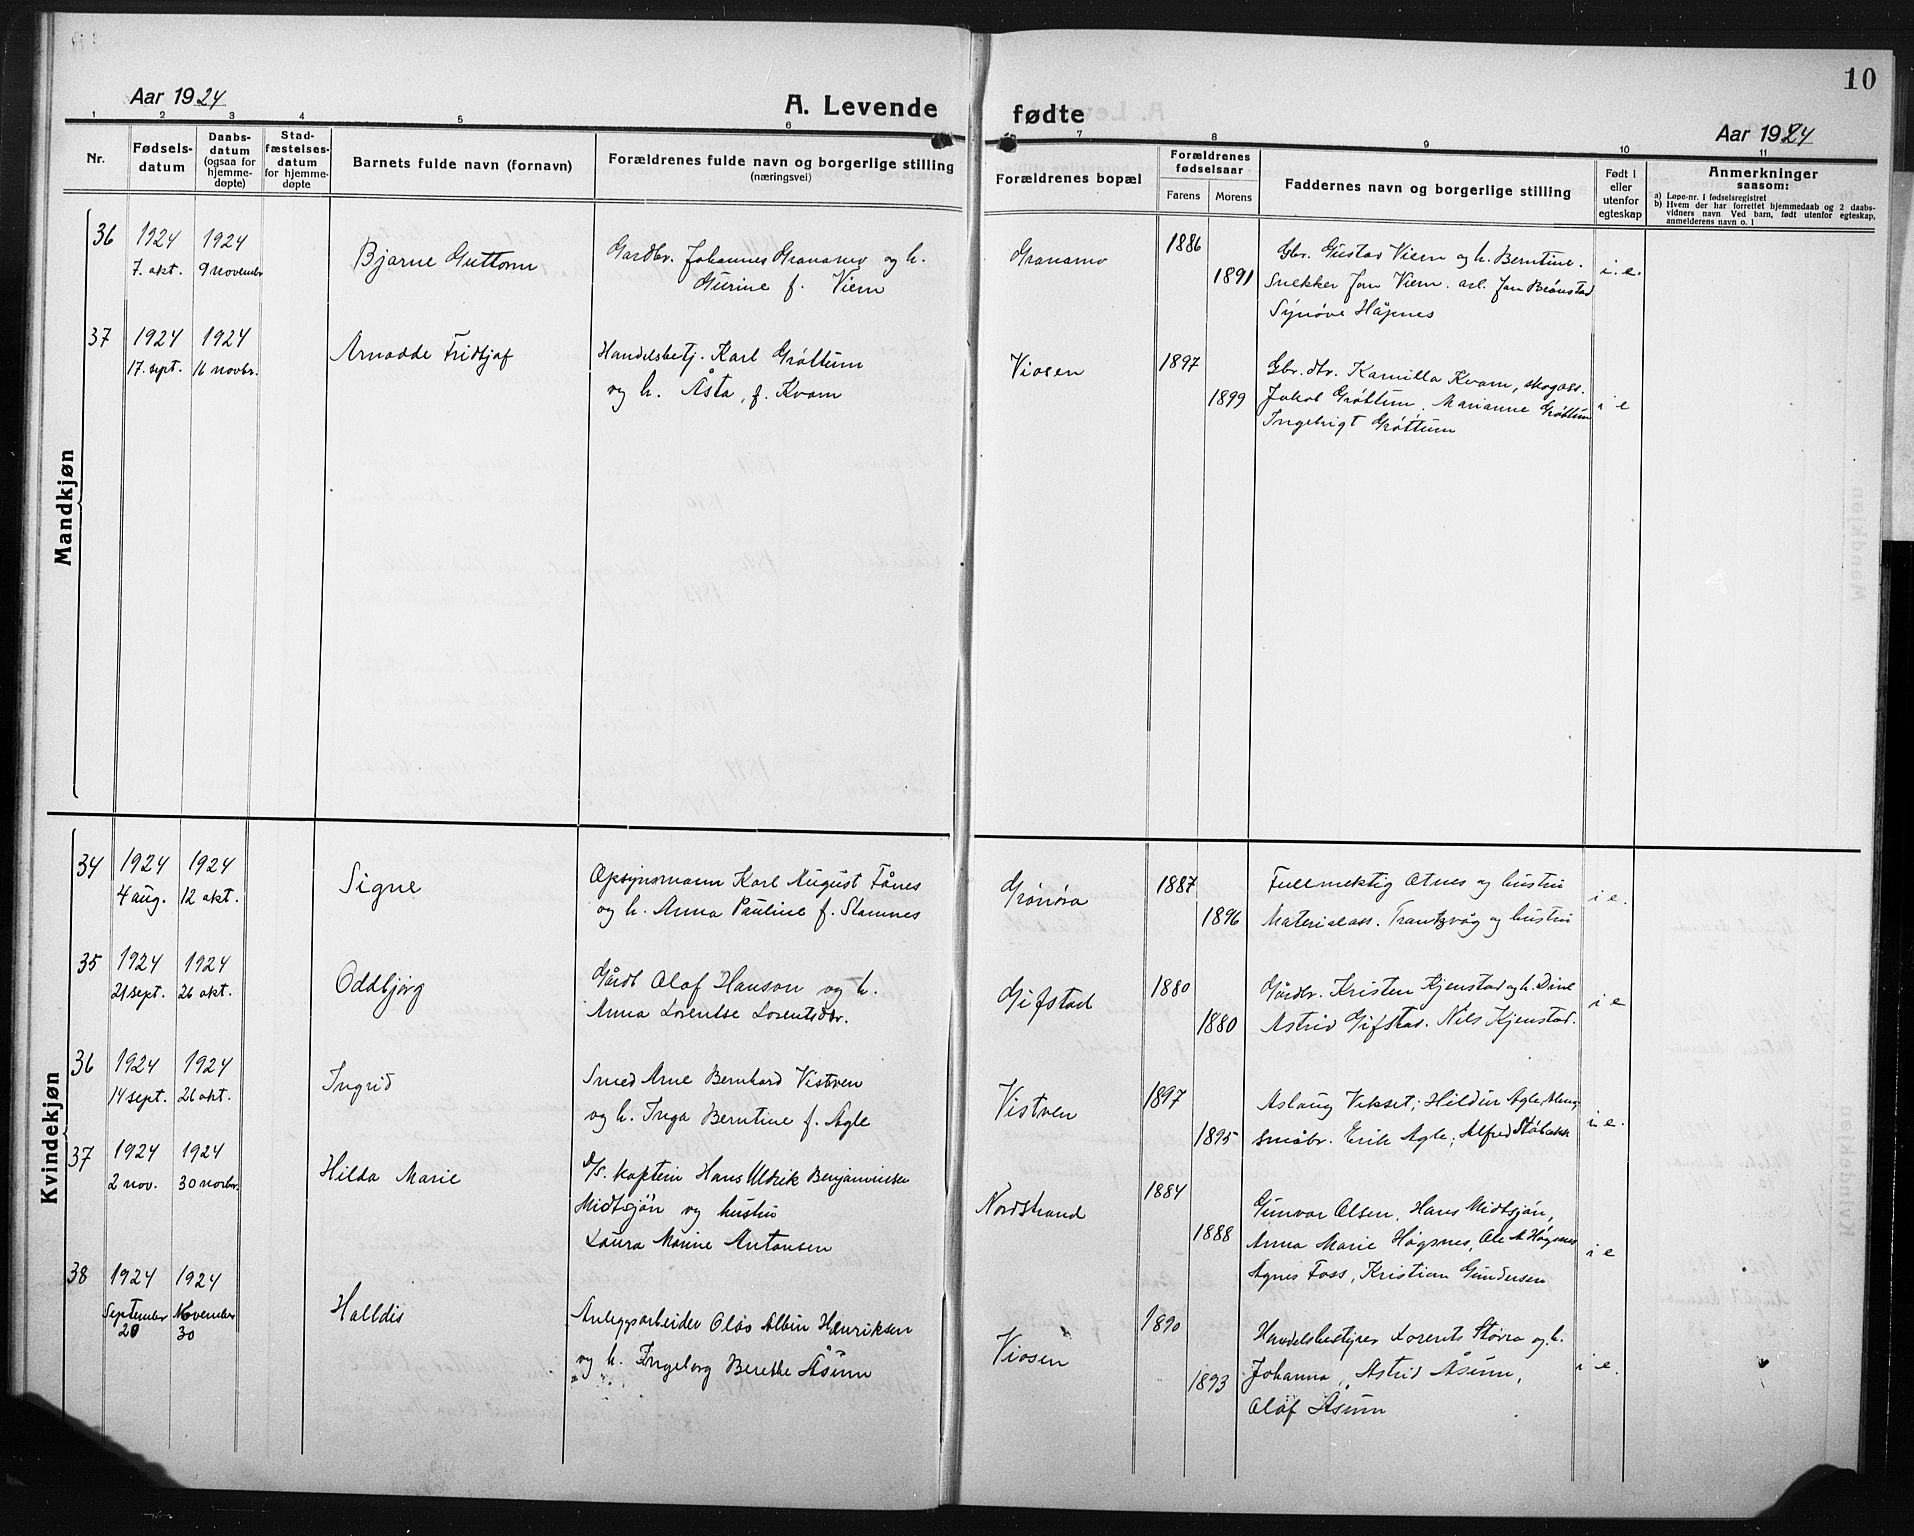 10
Aar 1924
A. Levende fødte
Aar 1924
1 2 3 4 5 6 7 8 9 10 11
Nr.
Fødsels-
datum
Daabs-
datum
(ogsaa for
hjemme-
døpte)
Stad-
fæstelses-
datum
for hjemme-
døpte
Barnets fulde navn (fornavn)
Forældrenes fulde navn og borgerlige stilling
(næringsvei)
Forældrenes bopæl
Forældrenes
fødselsaar
Farens Morens
Faddernes navn og borgerlige stilling
Født i
eller
utenfor
egteskap
Anmerkninger
saasom:
a) Løpe-nr. i fødselsregistret
b) Hvem der har forrettet hjemmedaab og 2 daabs-
vidners navn Ved barn, født utenfor egteskap,
anmelderens navn o. l
Mandkjøn
36 1924 1924
7. okt. 9 november
Bjarne Guttorm
Gardbr. Johannes Granamo og h.
Gurine f. Viem
Granamo
1886
1891
Gbr. Gustav Viem og h. Berntine.
Snekker Jon Viem. arb. Jon Brønstad
Synøve Håpnes
i. e.
37 1924 1924
17. sept. 16 novbr.
Arnodde Fridtjof
Handelsbetj. Karl Grøttum
og h. Åsta, f. Kvam
Viosen
1897
1899
Gbr. dtr. Kamilla Kvam, skogass.
Jakob Grøttum, Marianne Grøttum
Ingebrigt Grøttum
i e
Kvindekjøn
34 1924 1924
4 aug. 12 okt.
Signe
Opsynsmann Karl August Fånes
og h. Anna Pauline f. Stamnes
Grønøra
1887
1896
Fullmektig Otnes og hustru
Materialass. Trantzvåg og hustru
i e.
35 1924 1924
21 sept. 26 okt.
Oddbjørg
Gårdb Olaf Hanson og h.
Anna Lorentse Lorentsdtr.
Gifstad
1880
1880
Gårdbr. Kristen Kjenstad og h. Dine
Astrid Gifstad. Nils Kjenstad.
i e
36 1924 1924
14 sept. 26 okt.
Ingrid
Smed Arne Bernhard Vistven
og h. Inga Berntine f. Agle
Vistven
1897
1895
Aslaug Vekset; Hildur Agle,
småbr. Erik Agle; Alfred
i e.
37 1924 1924
2 nov. 30 novbr.
Hilda Marie
D/S. kaptein Hans Uldrik Benjaminsen
Midtsjøn og hustru
Laura Marie Antonsen
Nordstrand
1884
1888
Gunvor Olsen, Hans Midtsjøn,
Anna Marie Høgsnes, Ole A Høgsnes
Agnes Foss, Kristian Gundersen
i e
38 1924 1924
September November
20 30
Halldis
Anleggsarbeider Olav Albin Henriksen
og h. Ingeborg Berethe Åsum
Viosen
1890
1893
Handelsbestyrer Lorents Støvra og h.
Johanna, Astrid Åsum,
Olaf Åsum
i e.